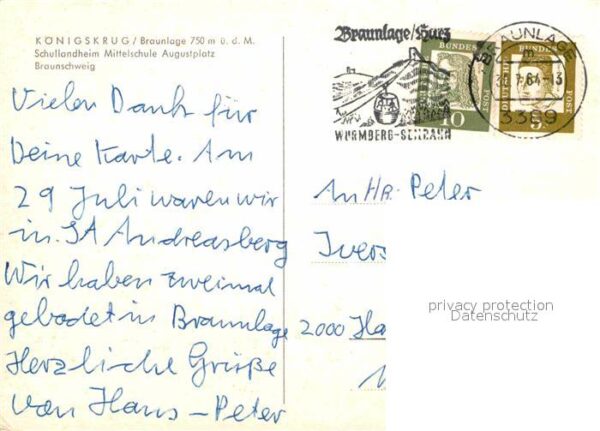 KÖNIGSKRUG / Braunlage 750 m ü. d. M.
Schullandheim Mittelschule Augustplatz
Braunschweig
Vielen Dank für
Deine Karte. Am
29 Juli waren wir
in. St Andreasberg
Wir haben zweimal
gebadet in Braunlage
Herzliche Grüße
von Hans - Peter
Braunlage/Harz
WURMBERG-SEILBAHN
BRAUNLAGE
3389
DEUTSCHE BUNDESPOST
10
DEUTSCHE BUNDESPOST
5
An Hr. Peter
Ivers
2000 Ha
privacy protection
Datenschutz